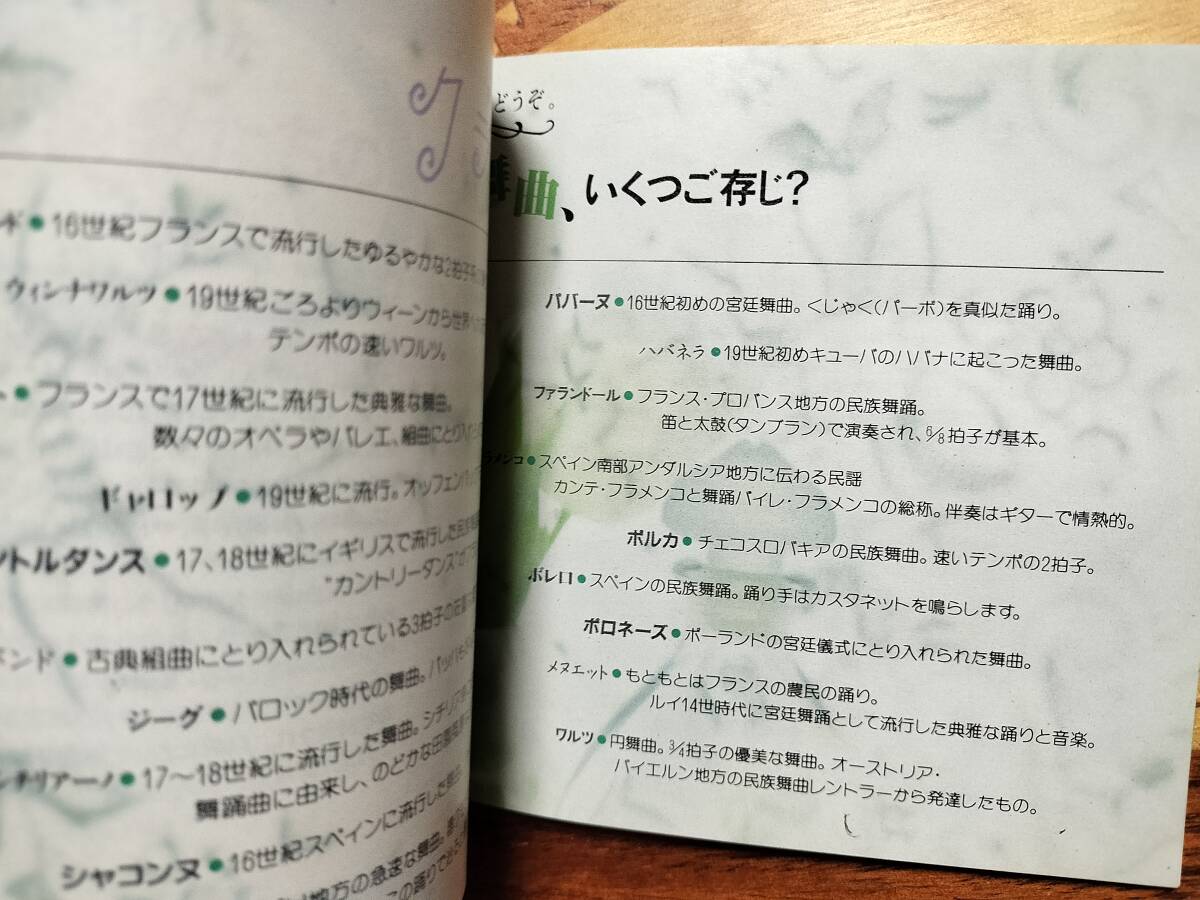 ク
16世紀フランスで流行したゆるやかな2拍子
ウィンナワルツ●19世紀ごろよりウィーンから世界
テンポの速いワルツ。
●フランスで17世紀に流行した典雅な舞曲。
数々のオペラやバレエ、組曲にとり入
ギャロップ●19世紀に流行。オッフェンバッ
ントルダンス●17、18世紀にイギリスで流行した民
“カントリーダンス”の
●古典組曲にとり入れられている3拍子の
ジーグ●バロック時代の舞曲。バッハ
シチリアーノ●17〜18世紀に流行した舞曲。シチリア
舞踊曲に由来し、のどかな田園
シャコンヌ●16世紀スペインに流行した
地方の急速な舞曲。
この踊りで
どうぞ。
舞曲、いくつご存じ?
パバーヌ●16世紀初めの宮廷舞曲。くじゃく(パーボ)を真似た踊り。
ハバネラ●19世紀初めキューバのハバナに起こった舞曲。
ファランドール●フランス・プロバンス地方の民族舞踊。
笛と太鼓(タンブラン)で演奏され、6/8拍子が基本。
ラメンコ●スペイン南部アンダルシア地方に伝わる民謡
カンテ・フラメンコと舞踊バイレ・フラメンコの総称。伴奏はギターで情熱的。
ポルカ●チェコスロバキアの民族舞曲。速いテンポの2拍子。
ボレロ●スペインの民族舞踊。踊り手はカスタネットを鳴らします。
ポロネーズ●ポーランドの宮廷儀式にとり入れられた舞曲。
メヌエット●もともとはフランスの農民の踊り。
ルイ14世時代に宮廷舞踊として流行した典雅な踊りと音楽。
ワルツ●円舞曲。3/4拍子の優美な舞曲。オーストリア・
バイエルン地方の民族舞曲レントラーから発達したもの。